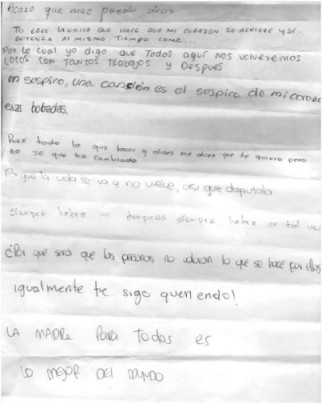 Acaso que mas puedo decir
TU ERES LA UNICA QUE HACE QUE MI CORAZON SE ACELERE Y SE
DETENGA AL MISMO TIEMPO COMO...
Por lo cual yo digo que Todos aquí nos volveremos
LOCOS CON TANTOS TRABAJOS y Despues
un suspiro, una canción es el suspiro de mi corazon
esas bobadas.
Pues todo lo que haces y dices me dices que te quiero pero
no se que ha cambiado
Porque la vida se va y no vuelve, asi que disfrutala
siempre habra un despues siempre habra un tal vez
¿Por que sera que las personas no valoran lo que se hace por ellos
igualmente te sigo queriendo!
LA MADRE PARA TODOS es
lo mejor DEL MUNDO